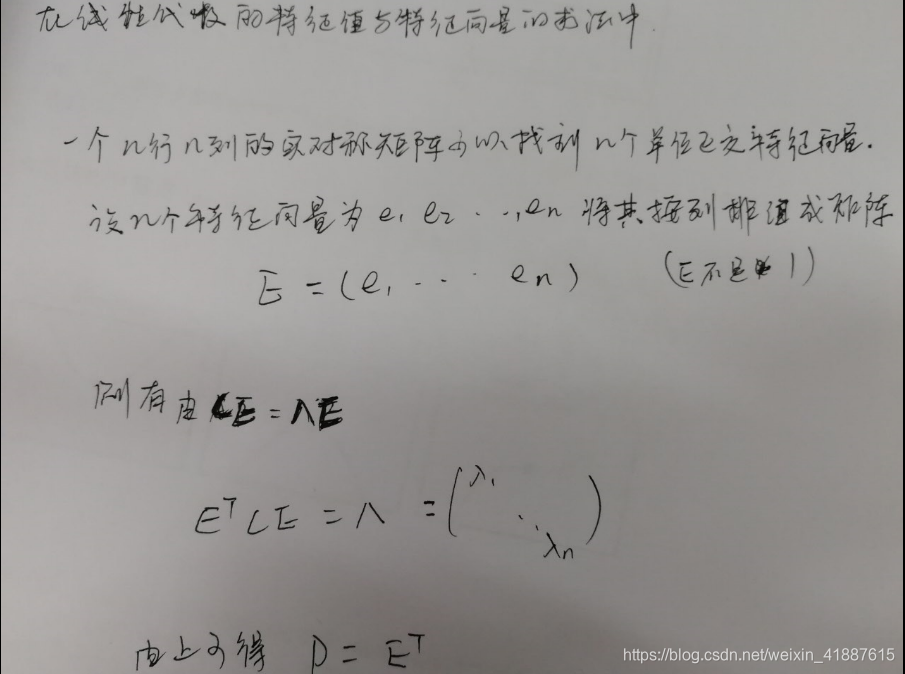 在线性代数的特征值与特征向量的求法中.
一个n行n列的实对称矩阵可以找到n个单位正交特征向量.
设n个特征向量为 e₁ e₂ ..., eₙ 将其按列排组成矩阵
E = (e₁ ... eₙ) (E不是1)
则有由 CE = ΛE
EᵀCE = Λ = (λ₁ ⋱ λₙ)
由上可得 P = Eᵀ
https://blog.csdn.net/weixin_41887615